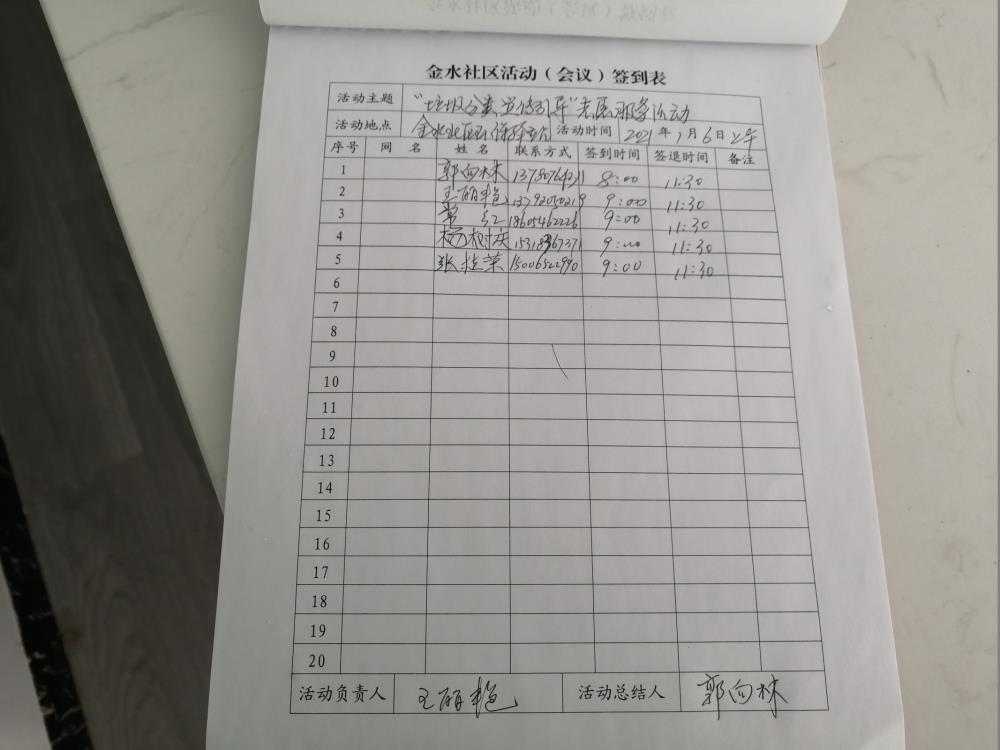 金水社区活动（会议）签到表
活动主题 "垃圾分类宣传引导"志愿服务活动
活动地点 金水社区 活动时间 2021年1月6日上午
序号 网名 姓名 联系方式 签到时间 签退时间 备注
1 郭向林 8:00 11:30
2 王丽艳 13792050219 9:00 11:30
3 常红 18605462226 9:00 11:30
4 杨树庆 9:00 11:30
5 张桂荣 15006522990 9:00 11:30
6
7
8
9
10
11
12
13
14
15
16
17
18
19
20
活动负责人 王丽艳 活动总结人 郭向林